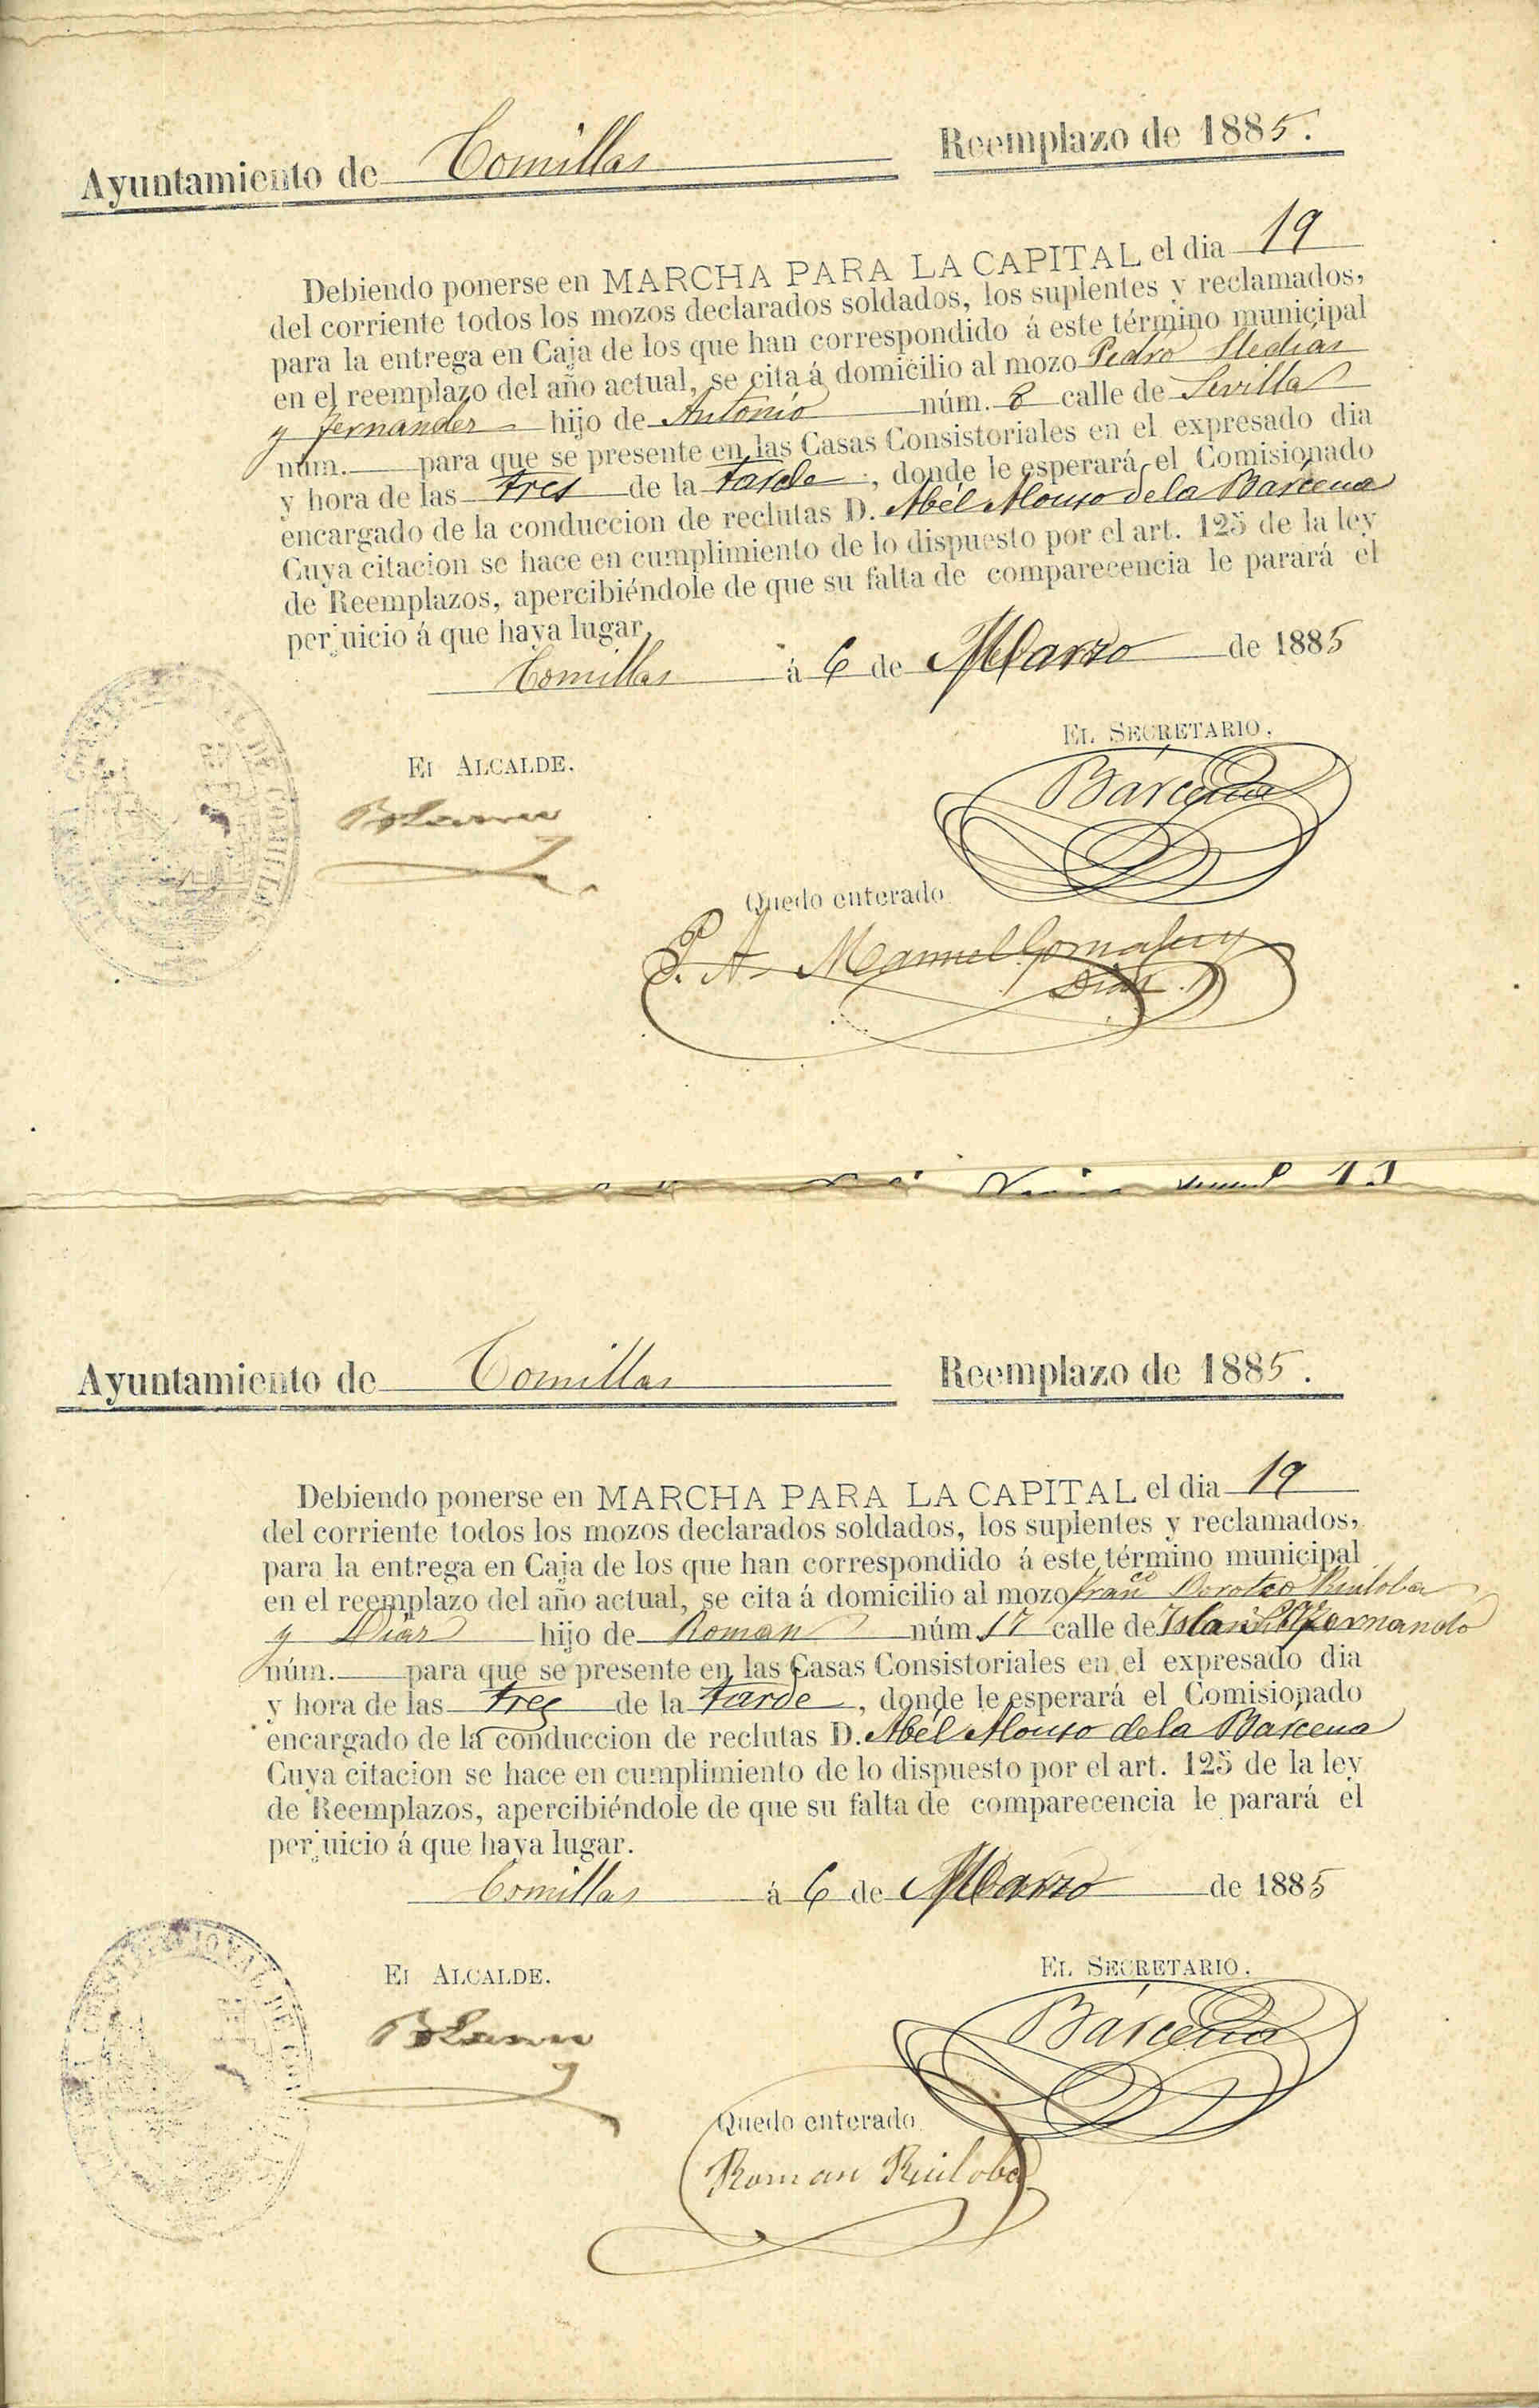 Ayuntamiento de Comillas Reemplazo de 1885.
Debiendo ponerse en MARCHA PARA LA CAPITAL el dia 19
del corriente todos los mozos declarados soldados, los suplentes y reclamados,
para la entrega en Caja de los que han correspondido á este término municipal
en el reemplazo del año actual, se cita á domicilio al mozo Pedro
y Fernandez hijo de Antonio núm. 8 calle de Sevilla
núm. para que se presente en las Casas Consistoriales en el expresado dia
y hora de las tres de la tarde, donde le esperará el Comisionado
encargado de la conduccion de reclutas D. Abél Alonso de la Barcena
Cuya citacion se hace en cumplimiento de lo dispuesto por el art. 125 de la ley
de Reemplazos, apercibiéndole de que su falta de comparecencia le parará el
perjuicio á que haya lugar.
Comillas á 6 de Marzo de 1885
El Alcalde. El Secretario.
Bárcena
Quedo enterado
P. A. Manuel
Diaz
Ayuntamiento de Comillas Reemplazo de 1885.
Debiendo ponerse en MARCHA PARA LA CAPITAL el dia 19
del corriente todos los mozos declarados soldados, los suplentes y reclamados,
para la entrega en Caja de los que han correspondido á este término municipal
en el reemplazo del año actual, se cita á domicilio al mozo Fran.co Doroteo Ruiloba
y Diaz hijo de Roman núm. 17 calle de Isla de San Fernando
núm. para que se presente en las Casas Consistoriales en el expresado dia
y hora de las tres de la tarde, donde le esperará el Comisionado
encargado de la conduccion de reclutas D. Abél Alonso de la Barcena
Cuya citacion se hace en cumplimiento de lo dispuesto por el art. 125 de la ley
de Reemplazos, apercibiéndole de que su falta de comparecencia le parará el
perjuicio á que haya lugar.
Comillas á 6 de Marzo de 1885
El Alcalde. El Secretario.
Bárcena
Quedo enterado
Roman Ruiloba